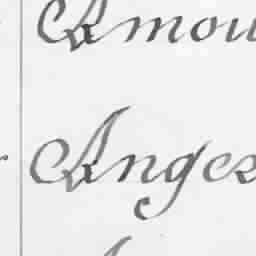 Amou
Anges